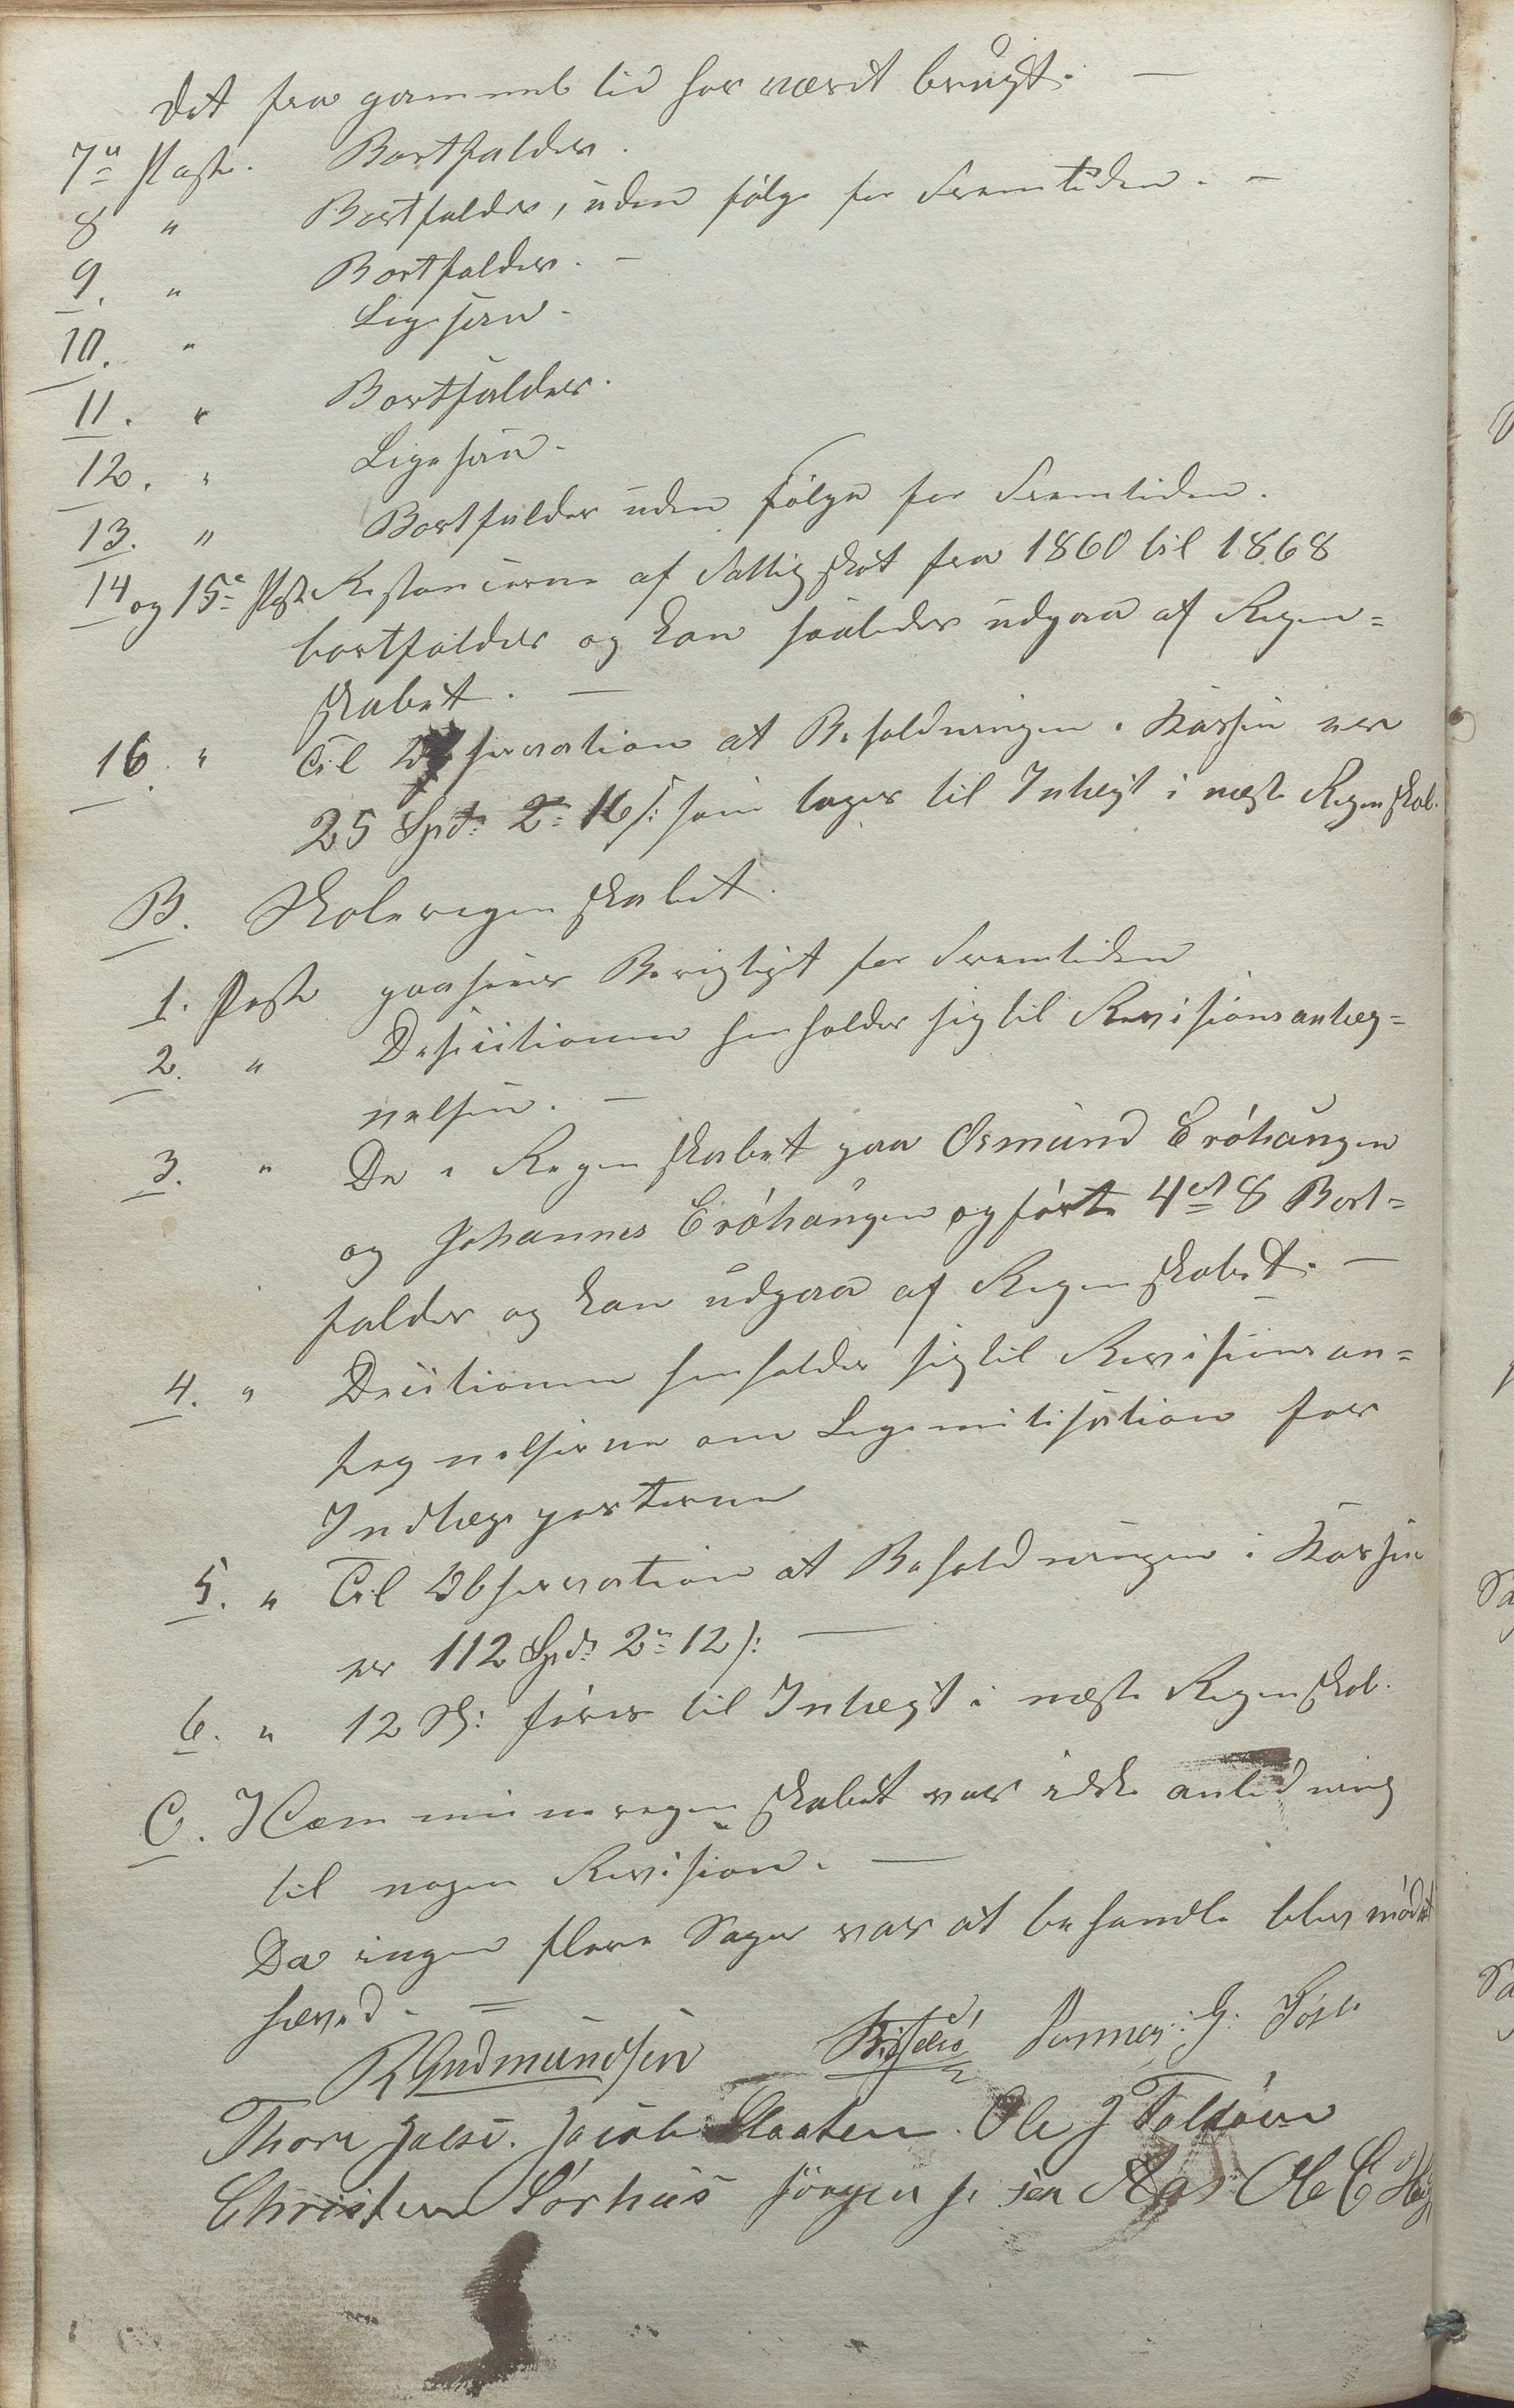 det fra gammel tid har været brugt. —
7de Post. Bortfalder.
8 " Bortfalder, uden følge for Fremtiden. —
9. " Bortfalder. —
10. " Ligesaa.
11. " Bortfalder.
12. " Ligesaa.
13. " Bortfalder uden følge for Fremtiden.
14 og 15de Post Restancerne af Fattigskat fra 1860 til 1868
bortfalder og kan saaledes udgaa af Regen=
skabet. —
16. " Til Observation at Beholdningen i Kassen er
25 Spd: 2 16 s: som tages til Intægt i næste Regenskab.
B. Skoleregenskabet.
1. Post Berigtiget for Fremtiden
2. " henholder sig til Revisionsanteg=
nelsen. —
3. " De i Regenskabet paa Osmund Eröhaugen
og Johannes Eröhaugen opførte 4 8 Bort=
falder og kan udgaa af Regenskabet. —
4. " henholder sig til Revisionsan=
tegnelserne om Legemitisation for
Indtægsposterne
5. " Til Observation at Beholdningen i Kassen
er 112 Spd: 2 12 s: —
6. " 12 Sk: føres til Intægt i næste Regenskab.
C. I Communeregenskabet var ikke anledning
til nogen Revision. —
Da ingen flere Sager var at behandle blev mödet
hæved. =
R Gudmundsen
Thore Jacob Slaaten. Ole J
Christen Sörhus Jörgen Ole E